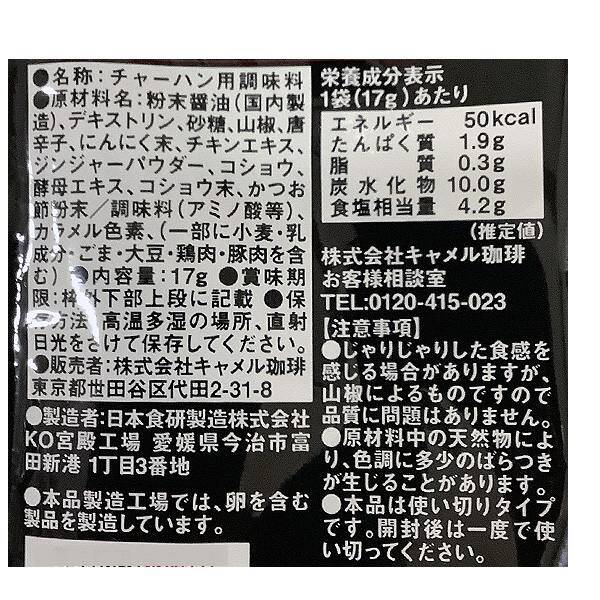 ●名称：チャーハン用調味料
●原材料名：粉末醤油(国内製
造)、デキストリン、砂糖、山椒、唐
辛子、にんにく末、チキンエキス、
ジンジャーパウダー、コショウ、
酵母エキス、コショウ末、かつお
節粉末／調味料(アミノ酸等)、
カラメル色素、(一部に小麦・乳
成分・ごま・大豆・鶏肉・豚肉を含
む) ●内容量：17g ●賞味期
限：枠外下部上段に記載 ●保
存方法：高温多湿の場所、直射
日光をさけて保存してください。
●販売者：株式会社キャメル珈琲
東京都世田谷区代田2-31-8
●製造者：日本食研製造株式会社
KO宮殿工場 愛媛県今治市富
田新港 1丁目3番地
●本品製造工場では、卵を含む
製品を製造しています。
栄養成分表示
1袋(17g)あたり
エネルギー 50kcal
たんぱく質 1.9g
脂質 0.3g
炭水化物 10.0g
食塩相当量 4.2g
(推定値)
株式会社キャメル珈琲
お客様相談室
TEL:0120-415-023
【注意事項】
●じゃりじゃりした食感を
感じる場合がありますが、
山椒によるものですので
品質に問題はありません。
●原材料中の天然物によ
り、色調に多少のばらつき
が生じることがあります。
●本品は使い切りタイプ
です。開封後は一度で使
い切ってください。